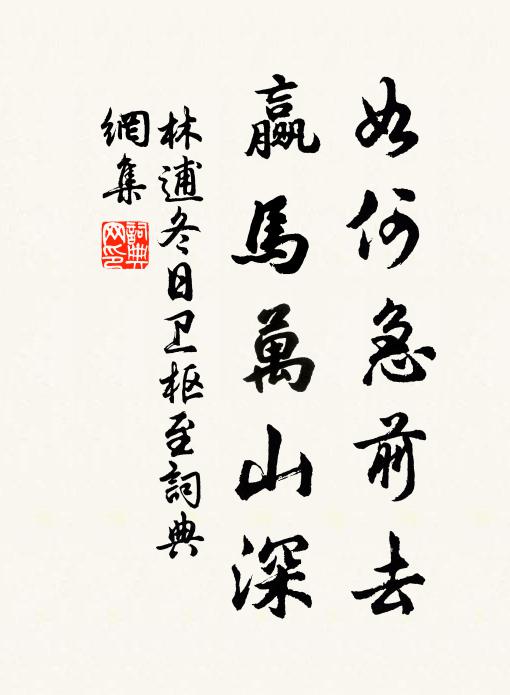 如何急前去
羸馬萬山深
林逋冬日卫枢至詞典
網集
詞典
网印